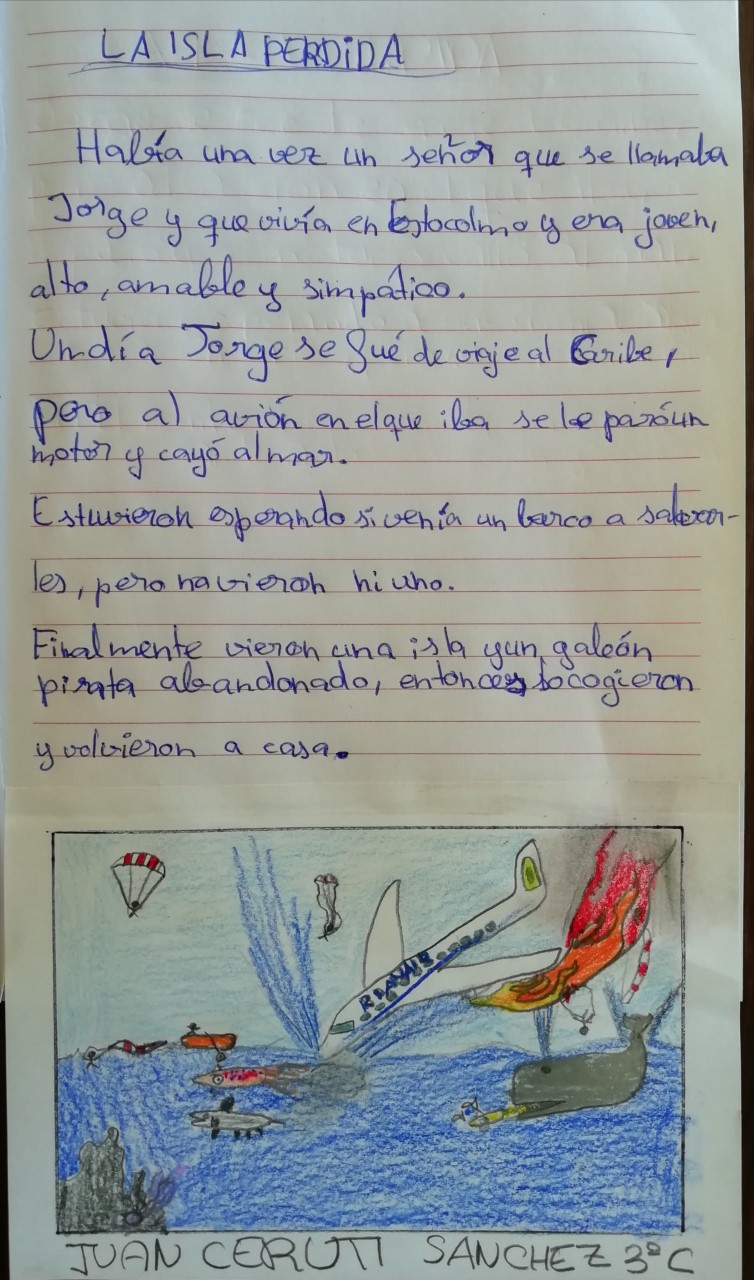 LA ISLA PERDIDA
Había una vez un señor que se llamaba
Jorge y que vivía en Estocolmo y era joven,
alto, amable y simpático.
Un día Jorge se fué de viaje al Caribe,
pero al avión en el que iba se le paró un
motor y cayó al mar.
Estuvieron esperando si venía un barco a salvar-
les, pero no vieron ni uno.
Finalmente vieron una isla y un galeón
pirata abandonado, entonces lo cogieron
y volvieron a casa.
JUAN CERUTI SANCHEZ 3º C